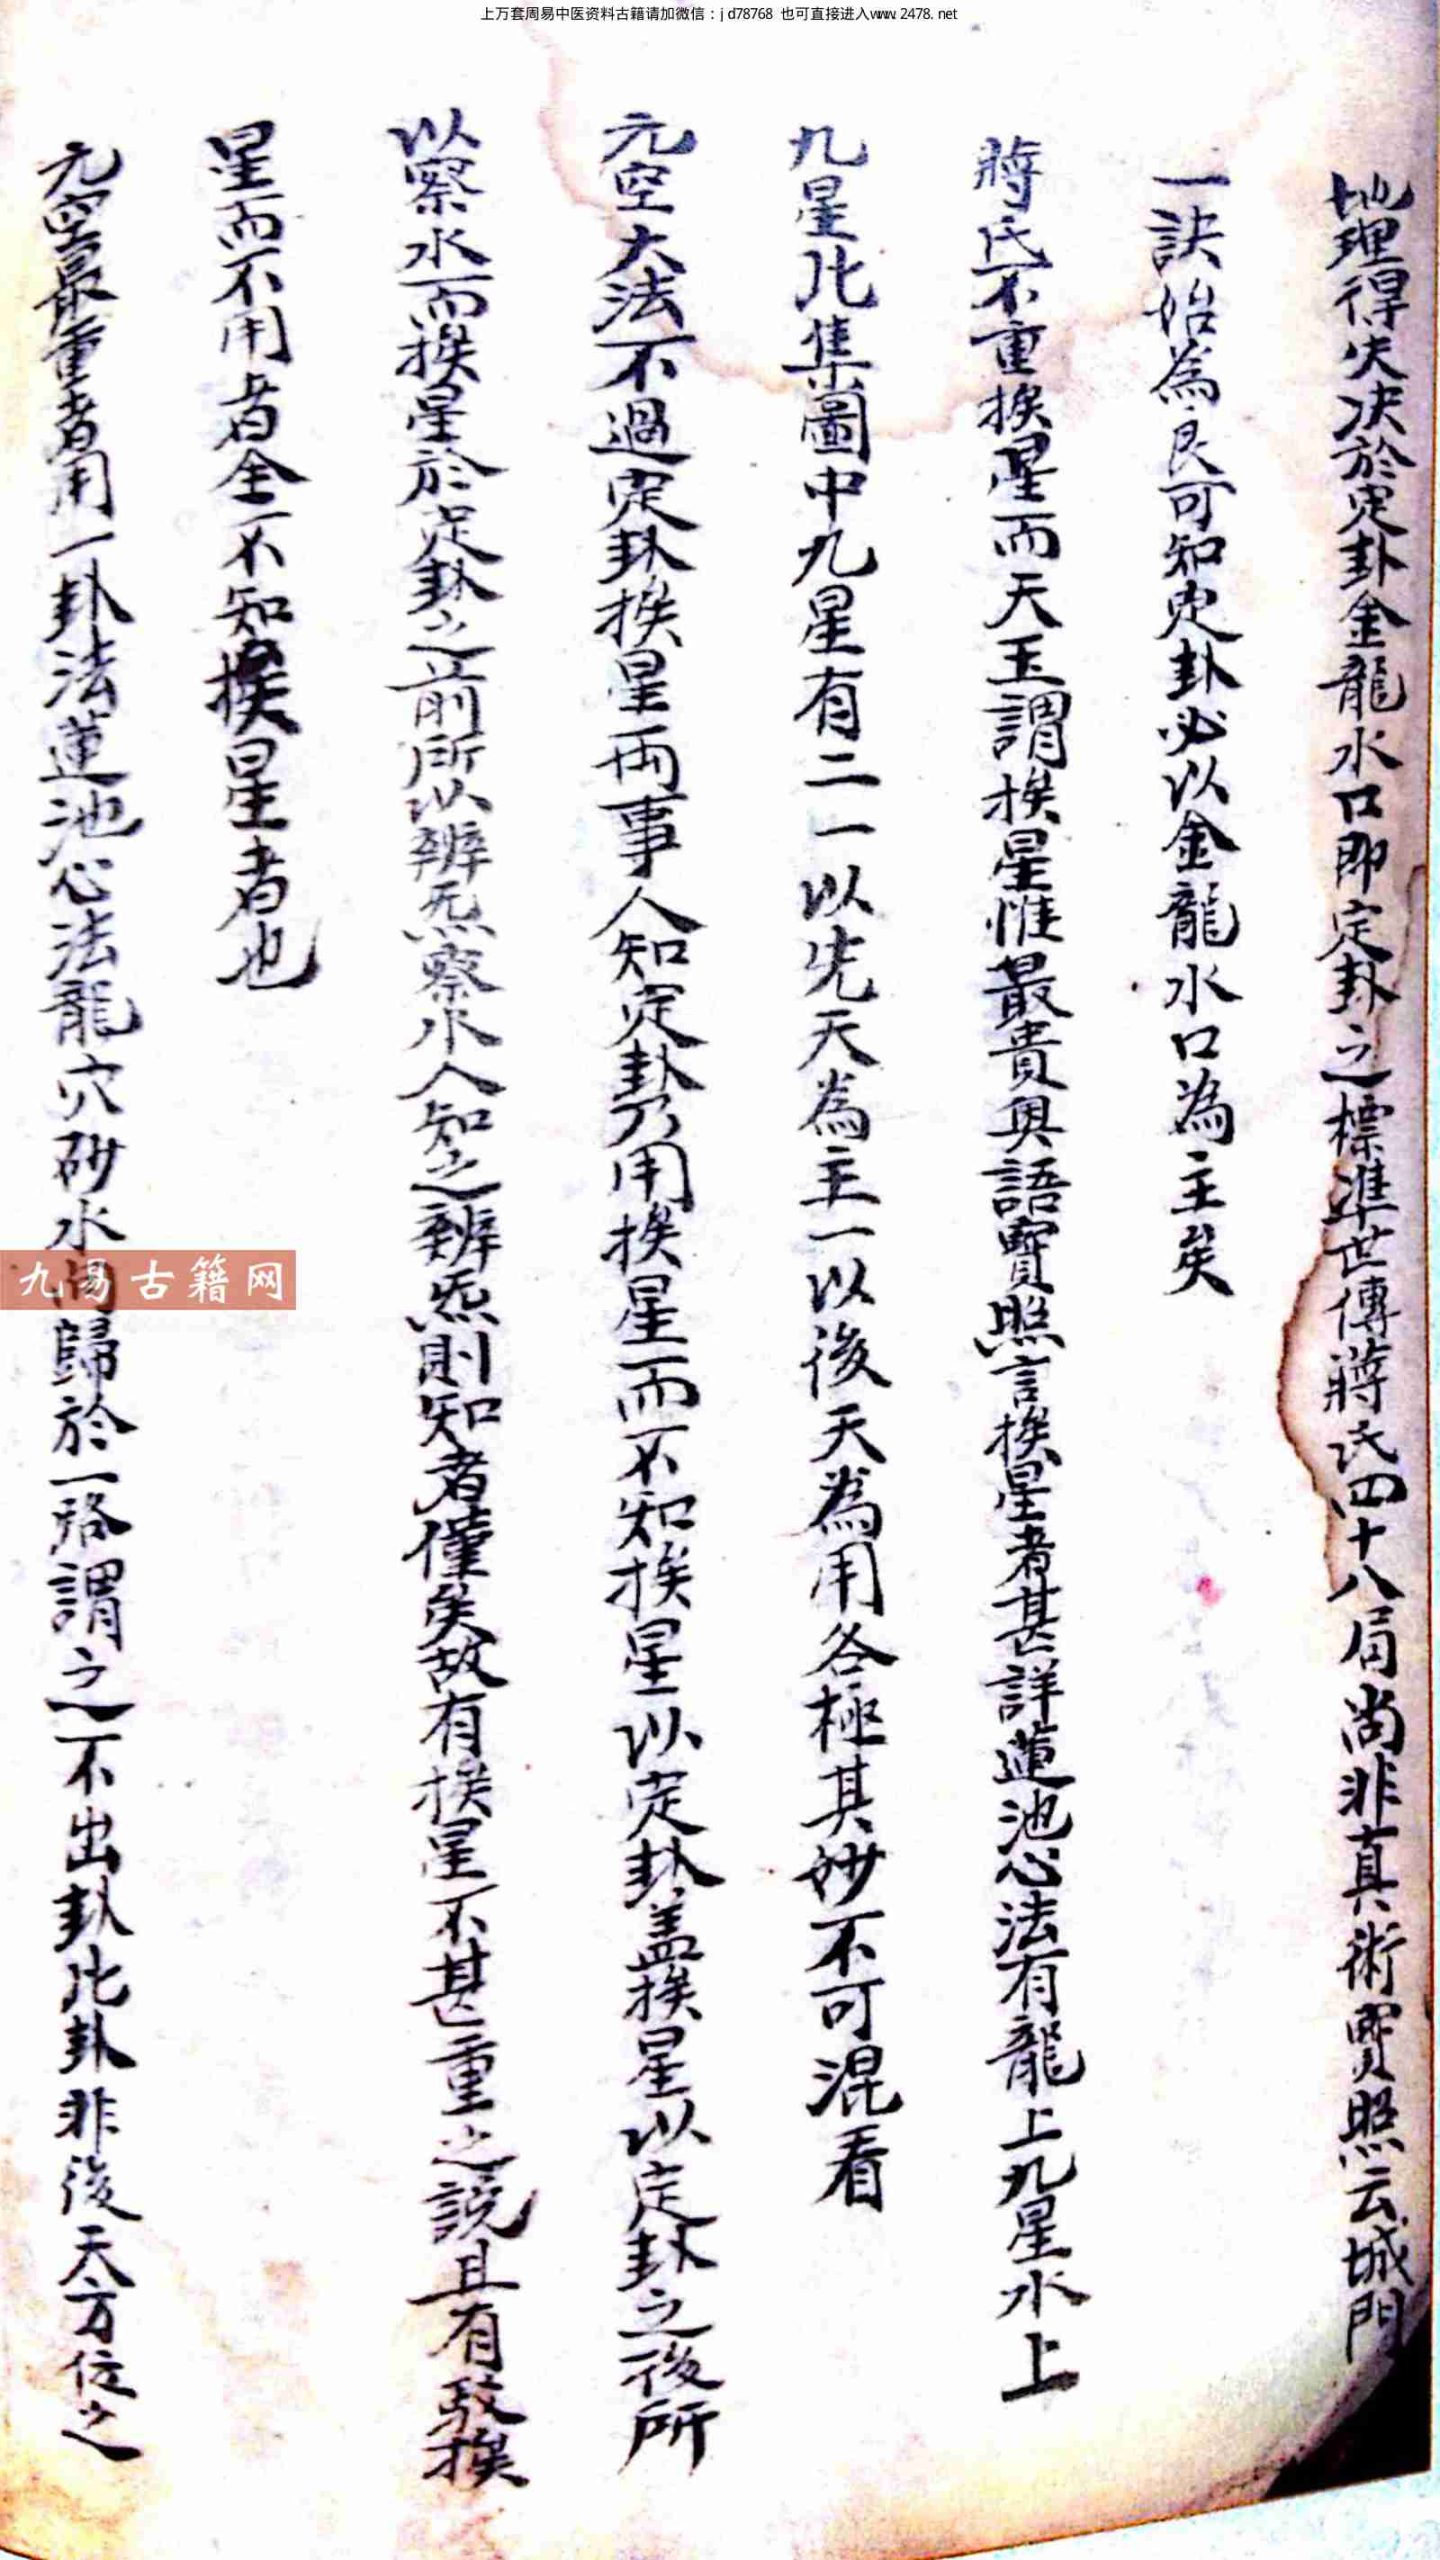 上万套周易中医资料古籍请加微信：jd78768 也可直接进入www.2478.net
地理得失决於定卦金龍水口即定卦之標準世傳蔣氏四十八局尚非真術寶照云城門
一訣始為良可知定卦必以金龍水口為主矣
蔣氏不重挨星而天玉謂挨星惟最貴奧語寶照言挨星者甚詳蓮池心法有龍上九星水上
九星此集圖中九星有二一以先天為主一以後天為用各極其妙不可混看
元空大法不過定卦挨星兩事人知定卦乃用挨星而不知挨星以定卦盖挨星以定卦之後所
以察水而挨星於定卦之前所以辨炁察水人知之辨炁則知者僅矣故有挨星不甚重之説且有駁挨
星而不用者全不知挨星者也
元空最重者用一卦法蓮池心法龍穴砂水向歸於一路謂之不出卦此卦非後天方位之
九易古籍网